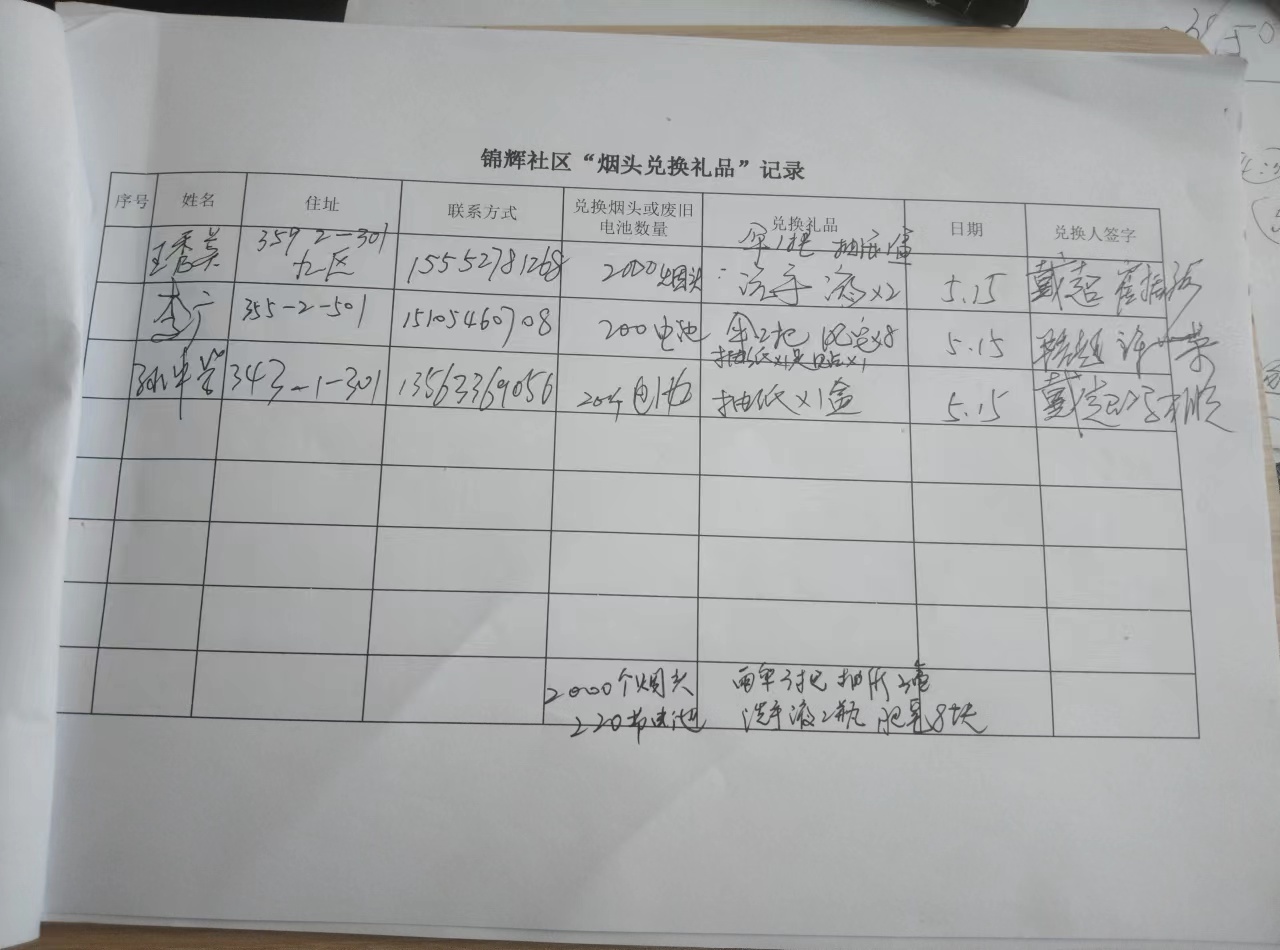 锦辉社区“烟头兑换礼品”记录
序号 姓名 住址 联系方式 兑换烟头或废旧电池数量 兑换礼品 日期 兑换人签字
王秀美 359 2-301 九区 15552781268 2000烟头 伞1把 抽纸1盒 洗手液x2 5.15 戴超
355-2-501 15105460708 200电池 伞2把 肥皂x8 抽纸x1 5.15 许
343-1-301 13563369056 20节电池 抽纸x1盒 5.15 戴超
2000个烟头 雨伞3把 抽纸3盒
220节电池 洗手液2瓶 肥皂8块